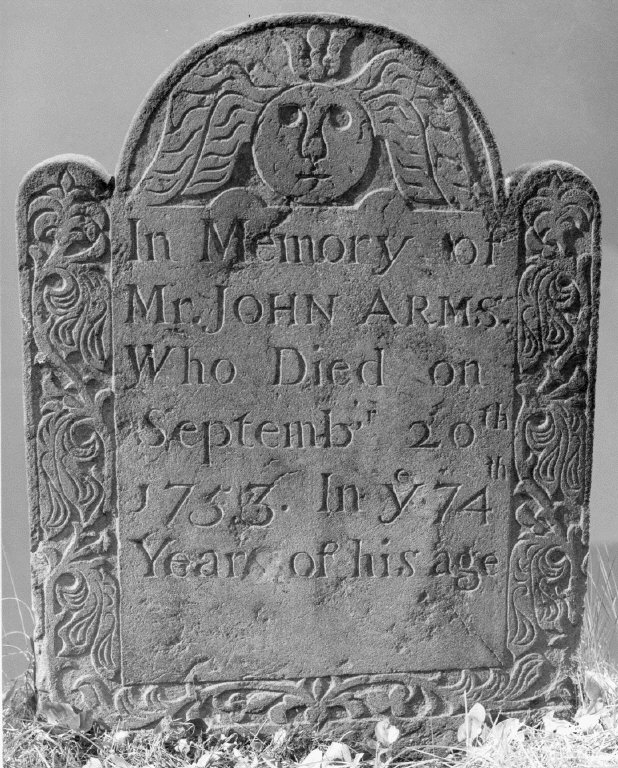 In Memory of
Mr. JOHN ARMS.
Who Died on
Septembʳ 20ᵗʰ
1753. In yᵉ 74ᵗʰ
Years of his age